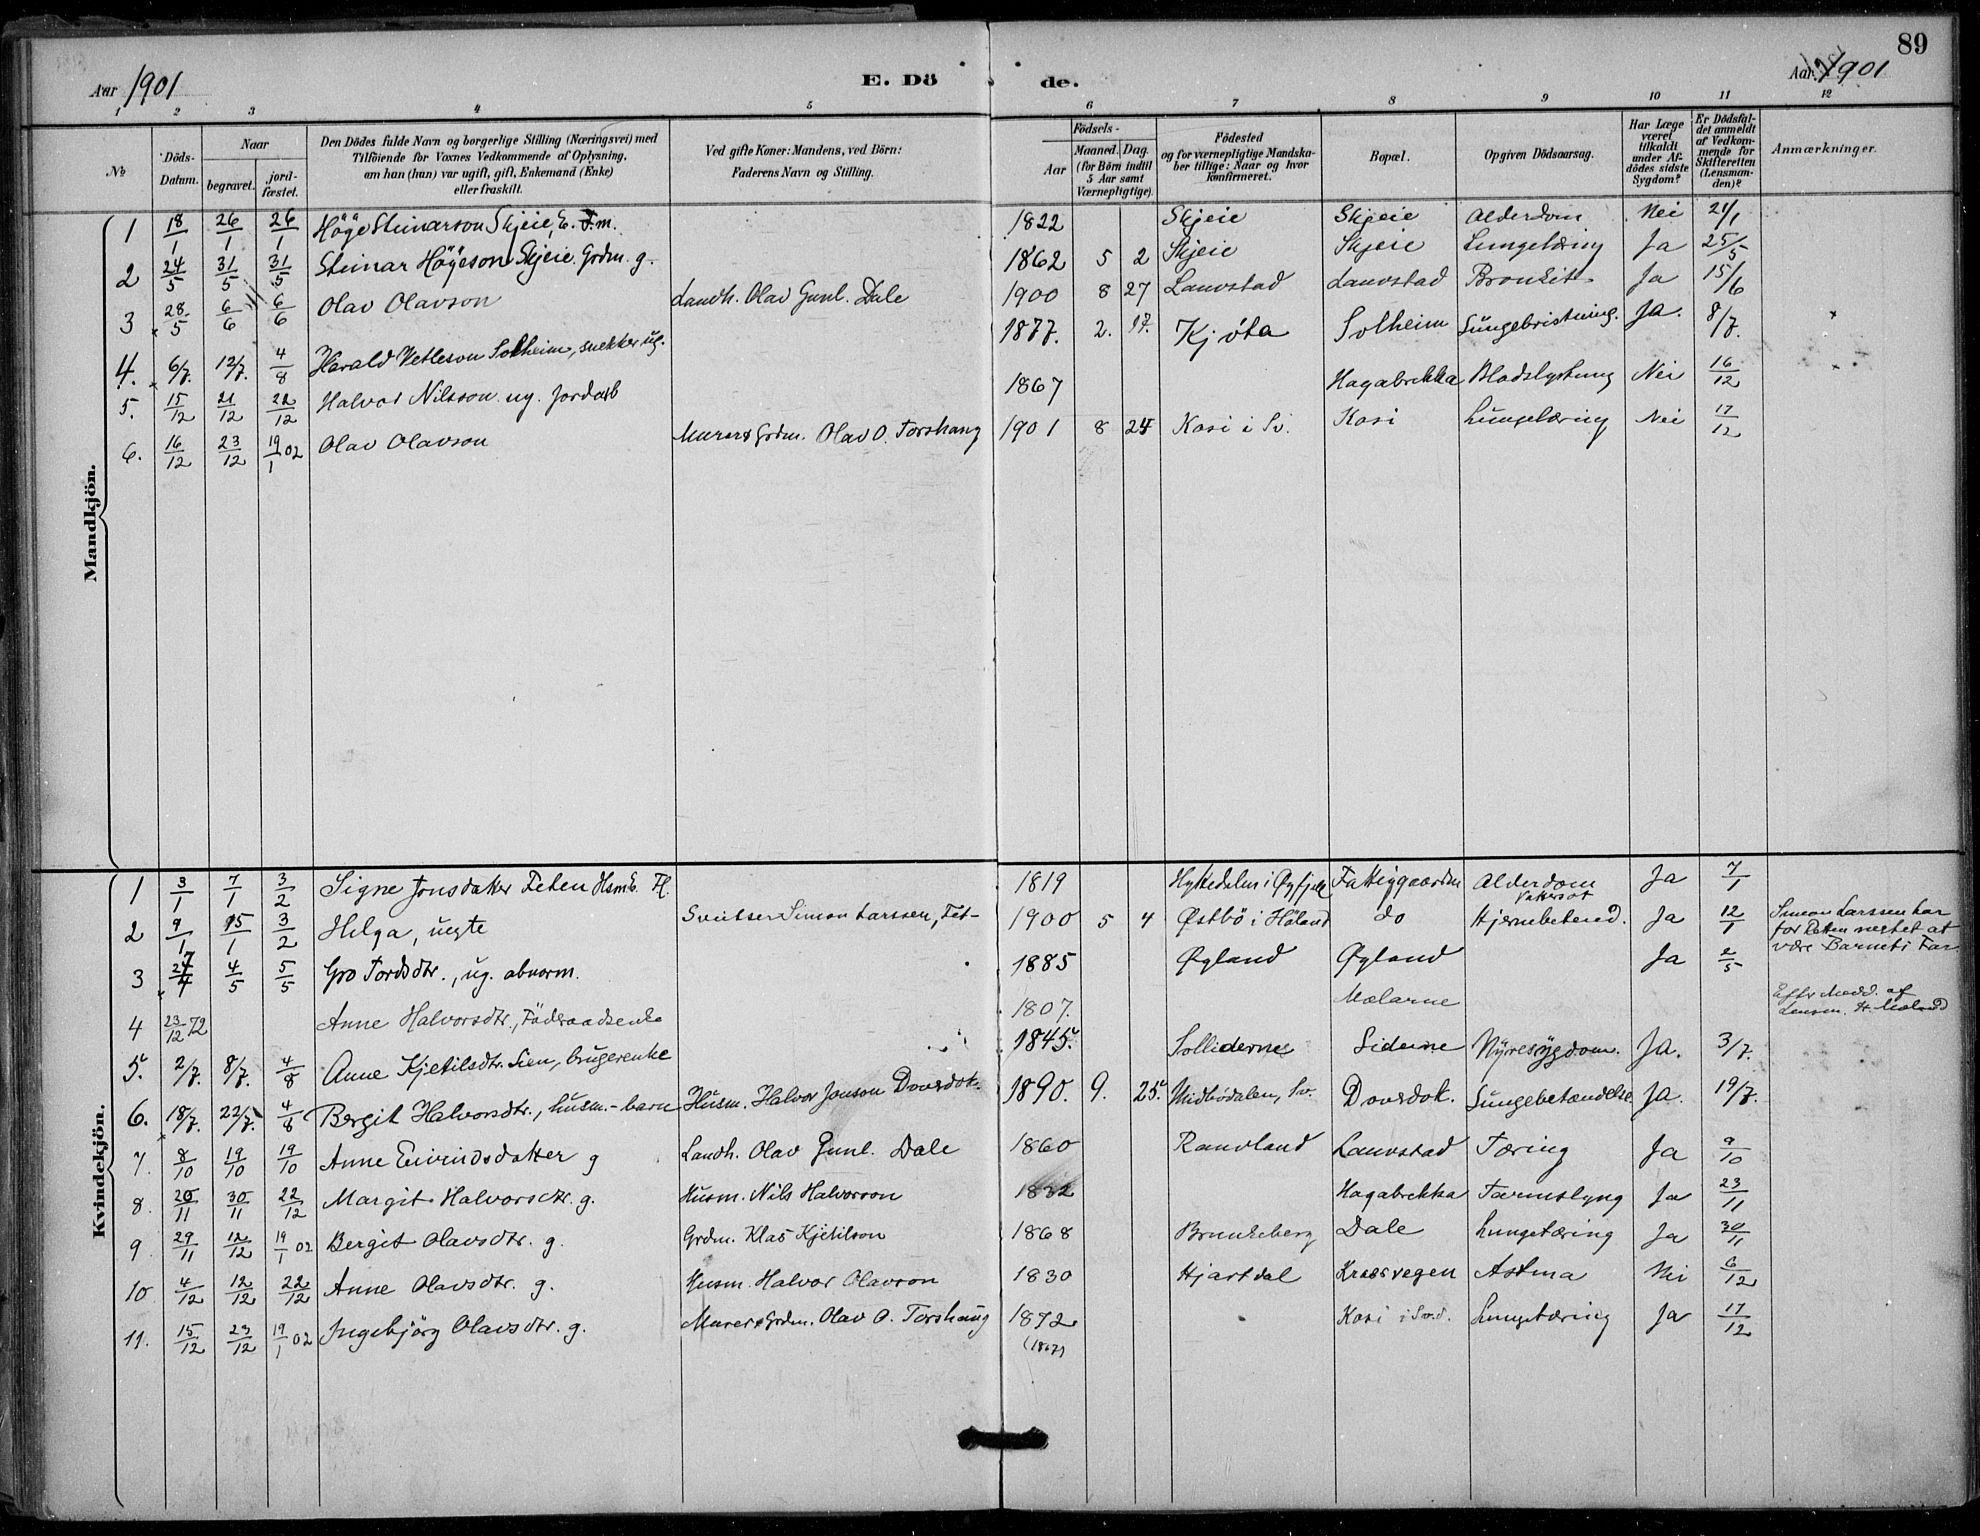 89
Aar 1901
E. Dö
de.
Aar 1901
1 2 3 4 5 6 7 8 9 10 11 12
№
Döds-Datum.
Naar
begravet.
jordfæstet.
Den Dödes fulde Navn og borgerlige Stilling (Næringsvei) med
Tilföiende for Voxnes Vedkommende af Oplysning,
om han (hun) var ugift, gift, Enkemand (Enke)
eller fraskilt.
Ved gifte Koner: Mandens, ved Börn:
Faderens Navn og Stilling.
Födsels-
Aar
Maaned. Dag.
(for Börn indtil
5 Aar samt
Værnepligtige).
Födested
og for værnepligtige Mandska-
ber tillige: Naar og hvor
konfirmeret.
Bopæl.
Opgiven Dödsaarsag.
Har Læge
været
tilkaldt
under Af-
dödes sidste
Sygdom?
Er Dödsfal-
det anmeldt
af Vedkom-
mende for
Skifteretten
(Lensman-
den)?
Anmærkninger.
Mandkjön.
1 18/1 26/1 26/1 Höge Steinarson Skjeie, E. F.m. 1822 Skjeie Skjeie Alderdom Nei 21/1
2 24/5 31/5 31/5 Steinar Högeson Skjeie Grdm. g. 1862 5 2 Skjeie Skjeie Lungetæring Ja 25/5
3 28/5 6/6 6/6 Olav Olavson Landh. Olav Gunl. Dale 1900 8 27 Lauvstad Lauvstad Bronkit Ja 15/6
4. 6/7. 12/7. 4/8 Harald Vetleson Solheim, snekker ug. 1877. 2. 17. Kjøta Solheim Lungebristning. Ja. 8/7.
5. 15/12 21/12 22/12 Halvor Nilsson ug. Jordarb 1867 Hagabrekka Blodstyrtning Nei 16/12
6. 16/12 23/12 19/1 02 Olav Olavson Murer & Grdm. Olav O. Torshaug 1901 8 24 Kosi i Sv. Kosi Lungetæring Nei 17/12
Kvindekjön.
1 3/1 7/1 3/2 Signe Jonsdatter Feten Hsm E. Fl. 1819 Hyttedalen i Øyfjell Fattiggaarden Alderdom Ja 7/1
2 9/1 15/1 3/2 Helga, uegte Sveitser Simon Larssen, Fet- 1900 5 4 Østbö i Høland do Hjernebetend. Vattersot Ja 12/1 Simon Larssen har
for Retten negtet at
være Barnets Far
3 27/4 4/5 5/5 Gro Tordsdtr., ug. abnorm. 1885 Øyland Øyland Ja 2/5
4 23/12 72 Anne Halvorsdtr., Föderaadsenke 1807. Mælarne Efter Medd. af
Lensm. H. Moland
5. 2/7. 8/7. 4/8 Anne Kjetilsdtr. Lien, brugerenke 1845. Solliderne Liderne Nyresygdom. Ja. 3/7.
6. 18/7. 22/7. 4/8 Bergit Halvorsdtr., husm.-barn Husm. Halvor Jonson Dovsdok. 1890. 9. 25. Midbødalen, Sv. Dovsdok. Lungebetændelse Ja. 19/7.
7. 8/10 19/10 19/10 Anne Eivindsdatter g Landh. Olav Gunl. Dale 1860 Rauland Lauvstad Tæring Ja 9/10
8. 20/11 30/11 22/12 Margit Halvorsdtr. g. Husm. Nils Halvorson 1832 Hagabrekka Tarmslyng Ja 23/11
9 29/11 12/12 19/1 02 Bergit Olavsdtr. g. Grdm. Klas Kjetilson 1868 Brunkeberg Dale Lungetæring Ja 30/11
10 4/12 12/12 22/12 Anne Olavsdtr. g. Husm. Halvor Olavson 1830 Hjartdal Krossvegen Astma Nei 6/12
11. 15/12 23/12 19/1 02 Ingebjörg Olavsdtr. g. Murer & Grdm. Olav O. Torshaug 1872 (1867) Kosi i Svd. Lungetæring Ja 17/12